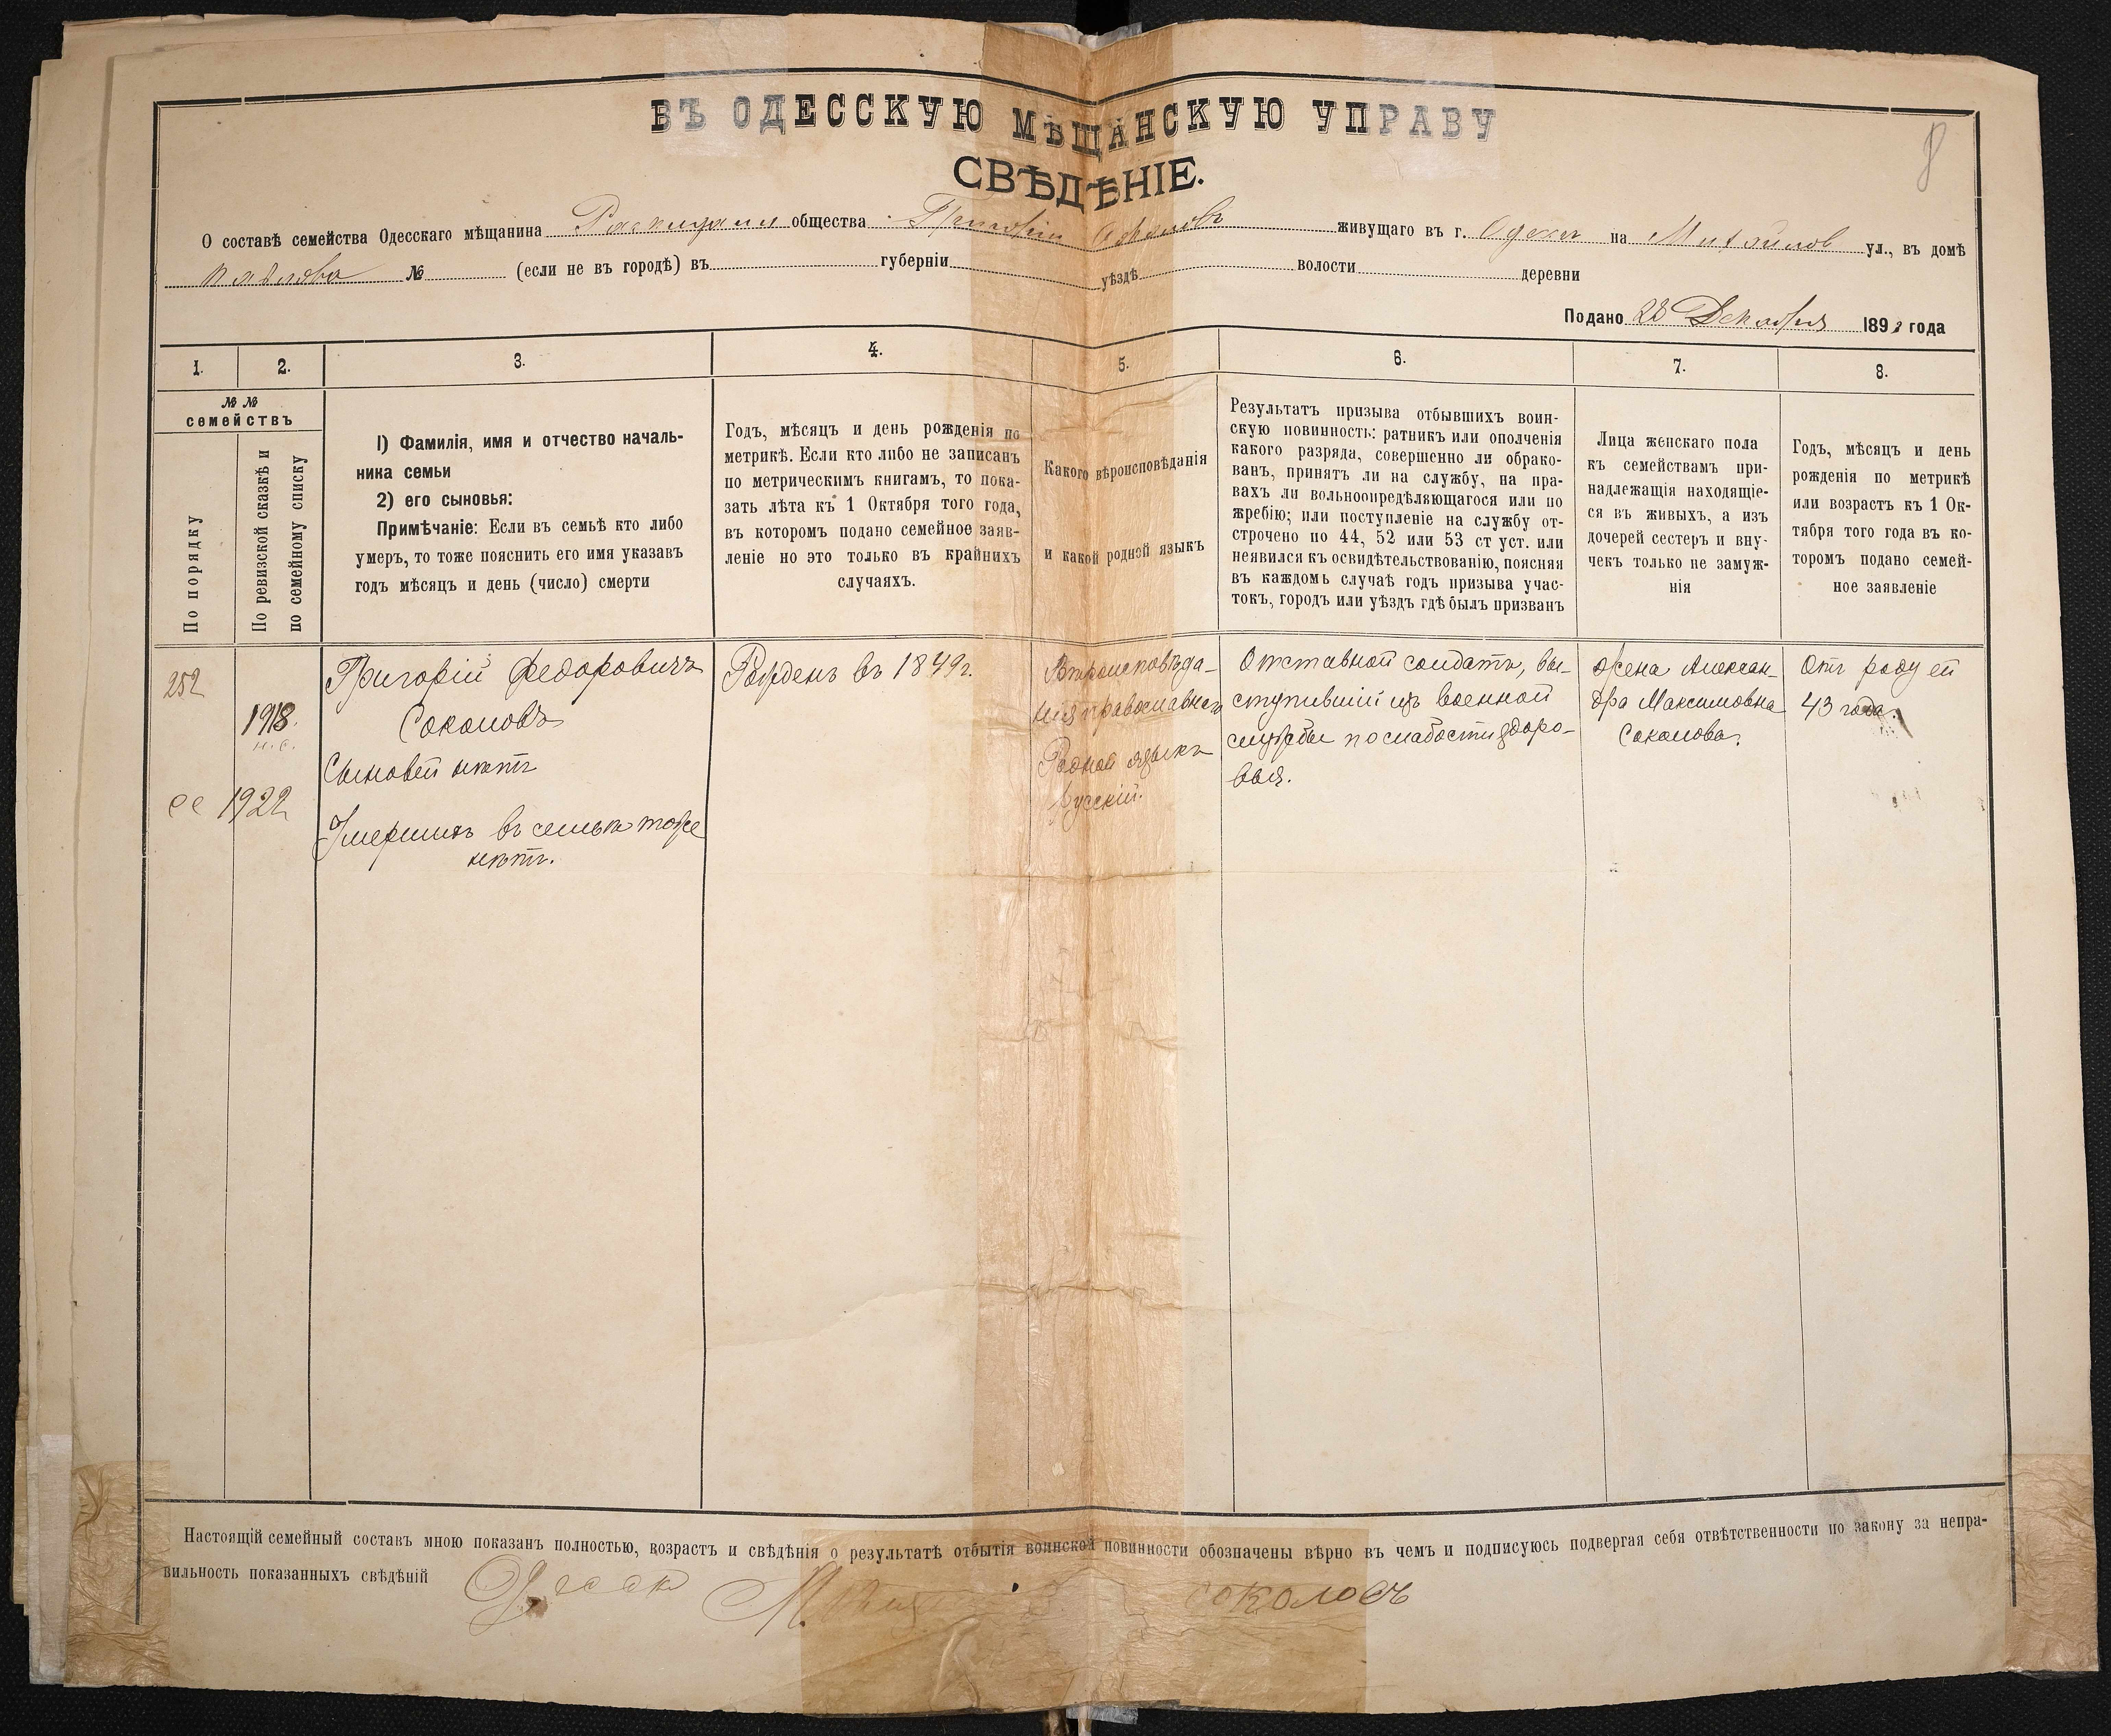 8
ВЪ ОДЕССКУЮ МѢЩАНСКУЮ УПРАВУ
СВѢДѢНІЕ.
О составѣ семейства Одесскаго мѣщанина общества Григорій Соколовъ живущаго въ г. Одессе на Михайлов ул., въ домѣ
№ (если не въ городѣ) въ губерніи уѣздѣ волости деревни
Подано 28 Декабря 189 года
1. 2. 3. 4. 5. 6. 7. 8.
№ № семействъ
По порядку
По ревизской сказкѣ и по семейному списку
1) Фамилія, имя и отчество началь-
ника семьи
2) его сыновья:
Примѣчаніе: Если въ семьѣ кто либо
умеръ, то тоже пояснить его имя указавъ
годъ мѣсяцъ и день (число) смерти
Годъ, мѣсяцъ и день рожденія по
метрикѣ. Если кто либо не записанъ
по метрическимъ книгамъ, то пока-
зать лѣта къ 1 Октября того года,
въ которомъ подано семейное заяв-
леніе но это только въ крайнихъ
случаяхъ.
Какого вѣроисповѣданія
и какой родной языкъ
Результатъ призыва отбывшихъ воин-
скую повинность: ратникъ или ополченія
какого разряда, совершенно ли обрако-
ванъ, принятъ ли на службу, на пра-
вахъ ли вольноопредѣляющагося или по
жребію; или поступленіе на службу от-
строчено по 44, 52 или 53 ст уст. или
неявился къ освидѣтельствованію, поясняя
въ каждомъ случаѣ годъ призыва учас-
токъ, городъ или уѣздъ гдѣ былъ призванъ
Лица женскаго пола
къ семействамъ при-
надлежащія находящіе-
ся въ живыхъ, а изъ
дочерей сестеръ и вну-
чекъ только не замуж-
нія
Годъ, мѣсяцъ и день
рожденія по метрикѣ
или возрастъ къ 1 Ок-
тября того года въ ко-
торомъ подано семей-
ное заявленіе
252
1918.
н. с.
ес 1922
Григорій Федоровичъ
Соколовъ
Сыновей нѣтъ
Умершихъ въ семьѣ тоже
нѣтъ.
Рожденъ въ 1849г.
Вѣроисповѣда-
нія православнаго
Родной языкъ
русскій.
Отставной солдатъ, вы-
ступившій изъ военной
службы по слабости здоро-
вья.
Жена Алексан-
дра Максимовна
Соколова.
Отъ роду ей
43 года.
Настоящій семейный составъ мною показанъ полностью, возрастъ и свѣдѣнія о результатѣ отбытія воинской повинности обозначены вѣрно въ чемъ и подписуюсь подвергая себя отвѣтственности по закону за непра-
вильность показанныхъ свѣдѣній соколовъ